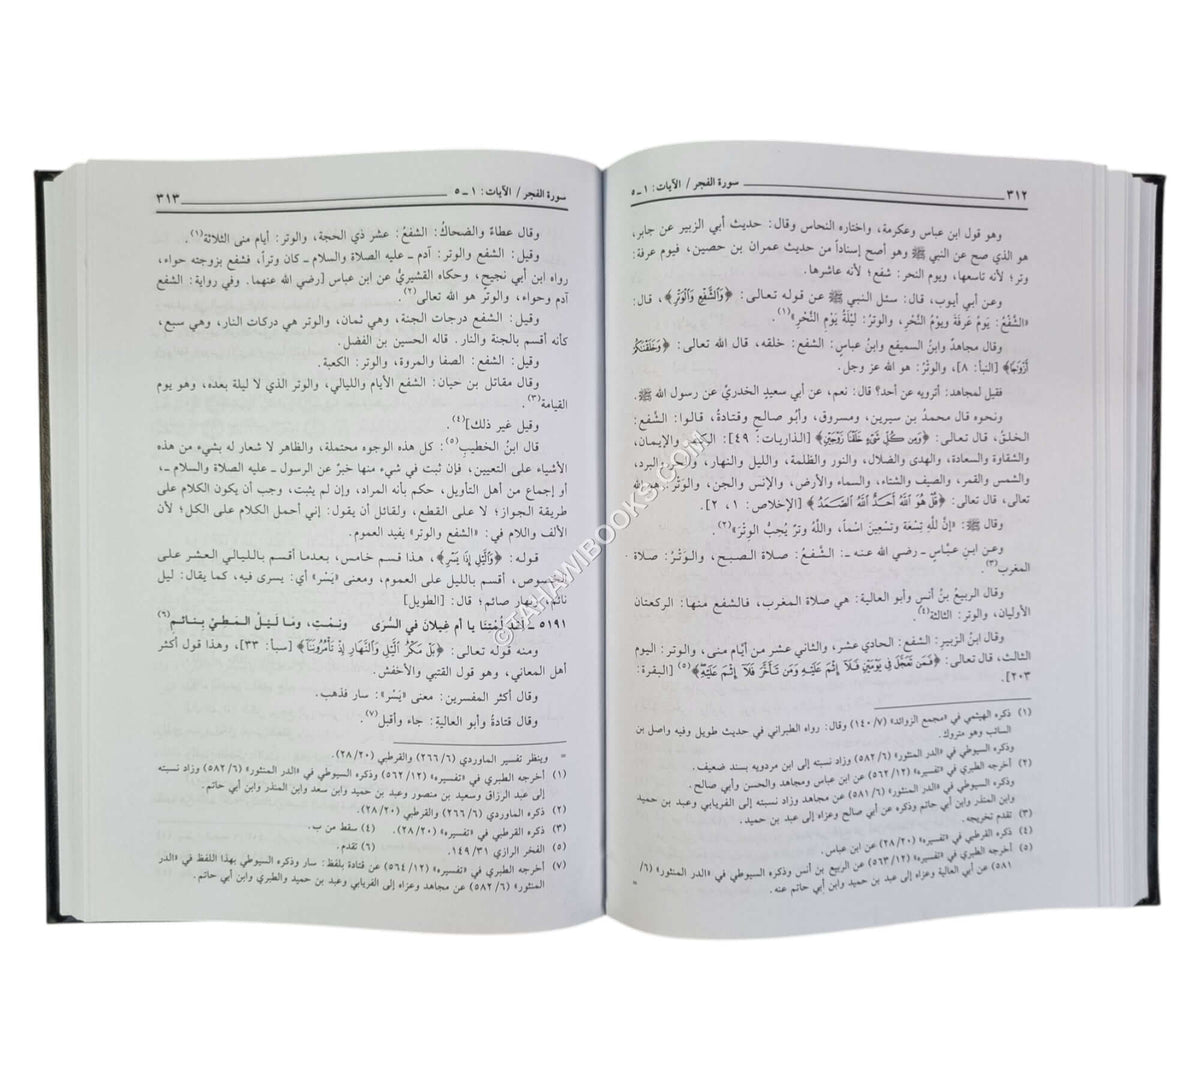 ٣١٢ سورة الفجر / الآيات: ١ ـ ٥
وهو قول ابن عباس وعكرمة، واختاره النحاس وقال: حديث أبي الزبير عن جابر،
هو الذي صح عن النبي ﷺ وهو أصح إسناداً من حديث عمران بن حصين، فيوم عرفة:
وتر؛ لأنه تاسعها، ويوم النحر: شفع؛ لأنه عاشرها.
وعن أبي أيوب، قال: سئل النبي ﷺ عن قوله تعالى: ﴿وَالشَّفْعِ وَالْوَتْرِ﴾، قال:
«الشَّفْعُ: يَومُ عَرفَةَ ويومُ النَّحْرِ، والوترُ: لَيْلَةُ يَوْمِ النَّحْرِ»(١).
وقال مجاهدٌ وابنُ السميفع وابنُ عباسٍ: الشفع: خلقه، قال الله تعالى: ﴿وَخَلَقْنَاكُمْ
أَزْوَاجًا﴾ [النبأ: ٨]، والوتْرُ: هو الله عز وجل.
فقيل لمجاهد: أترويه عن أحد؟ قال: نعم، عن أبي سعيدٍ الخدريِّ عن رسول الله ﷺ.
ونحوه قال محمدُ بن سيرين، ومسروق، وأبُو صالحٍ وقتادةُ، قالوا: الشَّفع:
الخلق، قال تعالى: ﴿وَمِن كُلِّ شَيْءٍ خَلَقْنَا زَوْجَيْنِ﴾ [الذاريات: ٤٩]: الكفر والإيمان،
والشقاوة والسعادة، والهدى والضلال، والنور والظلمة، والليل والنهار، والحر والبرد،
والشمس والقمر، والصيف والشتاء، والسماء والأرض، والإنس والجن، والوَتْرُ: هو الله
تعالى، قال تعالى: ﴿قُلْ هُوَ اللَّهُ أَحَدٌ اللَّهُ الصَّمَدُ﴾ [الإخلاص: ١، ٢].
وقال ﷺ: «إنَّ للَّهِ تِسْعَة وتِسْعِينَ اسْماً، واللَّهُ وترٌ يُحِبُّ الوتْرَ»(٢).
وعن ابنِ عبَّاس ـ رضي الله عنه ـ: الشَّفعُ: صلاة الصبح، والوَتْرُ: صلاة
المغرب(٣).
وقال الربيعُ بنُ أنس وأبو العالية: هي صلاة المغرب، فالشفع منها: الركعتان
الأوليان، والوتر: الثالثة(٤).
وقال ابنُ الزبيرِ: الشفع: الحادي عشر، والثاني عشر من أيَّام منى، والوتر: اليوم
الثالث، قال تعالى: ﴿فَمَن تَعَجَّلَ فِي يَوْمَيْنِ فَلَا إِثْمَ عَلَيْهِ وَمَن تَأَخَّرَ فَلَا إِثْمَ عَلَيْهِ﴾(٥) [البقرة:
٢٠٣].
(١) ذكره الهيثمي في «مجمع الزوائد» (٧/ ١٤٠) وقال: رواه الطبراني في حديث طويل وفيه واصل بن
السائب وهو متروك.
وذكره السيوطي في «الدر المنثور» (٦/ ٥٨٢) وزاد نسبته إلى ابن مردويه بسند ضعيف.
(٢) أخرجه الطبري في «تفسيره» (١٢/ ٥٦٢) عن ابن عباس ومجاهد والحسن وأبي صالح.
وذكره السيوطي في «الدر المنثور» (٦/ ٥٨١) عن مجاهد وزاد نسبته إلى الفريابي وعبد بن حميد
وابن المنذر وابن أبي حاتم وذكره عن أبي صالح وعزاه إلى عبد بن حميد.
(٣) تقدم تخريجه.
(٤) ذكره القرطبي في «تفسيره» (٢٠/ ٢٨) عن ابن عباس.
(٥) أخرجه الطبري في «تفسيره» (١٢/ ٥٦٣) عن الربيع بن أنس وذكره السيوطي في «الدر المنثور» (٦/
٥٨١) عن أبي العالية وعزاه إلى عبد بن حميد وابن أبي حاتم عنه. =
سورة الفجر / الآيات: ١ ـ ٥ ٣١٣
وقال عطاءٌ والضحاكُ: الشفعُ: عشر ذي الحجة، والوتر: أيام منى الثلاثة(١).
وقيل: الشفع والوتر: آدم ـ عليه الصلاة والسلام ـ كان وتراً، فشفع بزوجته حواء،
رواه ابن أبي نجيح، وحكاه القشيريُّ عن ابن عباس [رضي الله عنهما. وفي رواية: الشفع
آدم وحواء، والوتر هو الله تعالى(٢).
وقيل: الشفع درجات الجنة، وهي ثمان، والوتر هي دركات النار، وهي سبع،
كأنه أقسم بالجنة والنار. قاله الحسين بن الفضل.
وقيل: الشفع: الصفا والمروة، والوتر: الكعبة.
وقال مقاتل بن حيان: الشفع الأيام والليالي، والوتر الذي لا ليلة بعده، وهو يوم
القيامة(٣).
وقيل غير ذلك](٤).
قال ابنُ الخطيبِ(٥): كل هذه الوجوه محتملة، والظاهر لا شعار له بشيء من هذه
الأشياء على التعيين، فإن ثبت في شيء منها خبرٌ عن الرسول ـ عليه الصلاة والسلام ـ،
أو إجماع من أهل التأويل، حكم بأنه المراد، وإن لم يثبت، وجب أن يكون الكلام على
طريقة الجواز؛ لا على القطع، ولقائل أن يقول: إني أحمل الكلام على الكل؛ لأن
الألف واللام في: «الشفع والوتر» يفيد العموم.
قوله: ﴿وَاللَّيْلِ إِذَا يَسْرِ﴾، هذا قسم خامس، بعدما أقسم بالليالي العشر على
الخصوص، أقسم بالليل على العموم، ومعنى «يَسْر» أي: يسرى فيه، كما يقال: ليل
نائم، ونهار صائم؛ قال: [الطويل]
٥١٩١ ـ لَقَدْ لُمْتِنَا يا أم غيلانَ في السُّرَى ونمتِ، وما لَيْلُ المَطِيِّ بنائمِ(٦)
ومنه قوله تعالى: ﴿بَلْ مَكْرُ اللَّيْلِ وَالنَّهَارِ إِذْ تَأْمُرُونَنَا﴾ [سبأ: ٣٣]، وهذا قول أكثر
أهل المعاني، وهو قول القتبي والأخفش.
وقال أكثر المفسرين: معنى «يَسْر»: سار فذهب.
وقال قتادةُ وأبو العاليةِ: جاء وأقبل(٧).
= وينظر تفسير الماوردي (٦/ ٢٦٦) والقرطبي (٢٠/ ٢٨).
(١) أخرجه الطبري في «تفسيره» (١٢/ ٥٦٢) وذكره السيوطي في «الدر المنثور» (٦/ ٥٨٢) وزاد نسبته
إلى عبد الرزاق وسعيد بن منصور وعبد بن حميد وابن سعد وابن المنذر وابن أبي حاتم.
(٢) ذكره الماوردي (٦/ ٢٦٦) والقرطبي (٢٠/ ٢٨).
(٣) ذكره القرطبي في «تفسيره» (٢٠/ ٢٨). (٤) سقط من ب.
(٥) الفخر الرازي ٣١/ ١٤٩. (٦) تقدم.
(٧) أخرجه الطبري في «تفسيره» (١٢/ ٥٦٤) عن قتادة بلفظ: سار وذكره السيوطي بهذا اللفظ في «الدر
المنثور» (٦/ ٥٨٢) عن مجاهد وعزاه إلى الفريابي وعبد بن حميد والطبري وابن أبي حاتم.
©TAHAWIBOOKS.COM